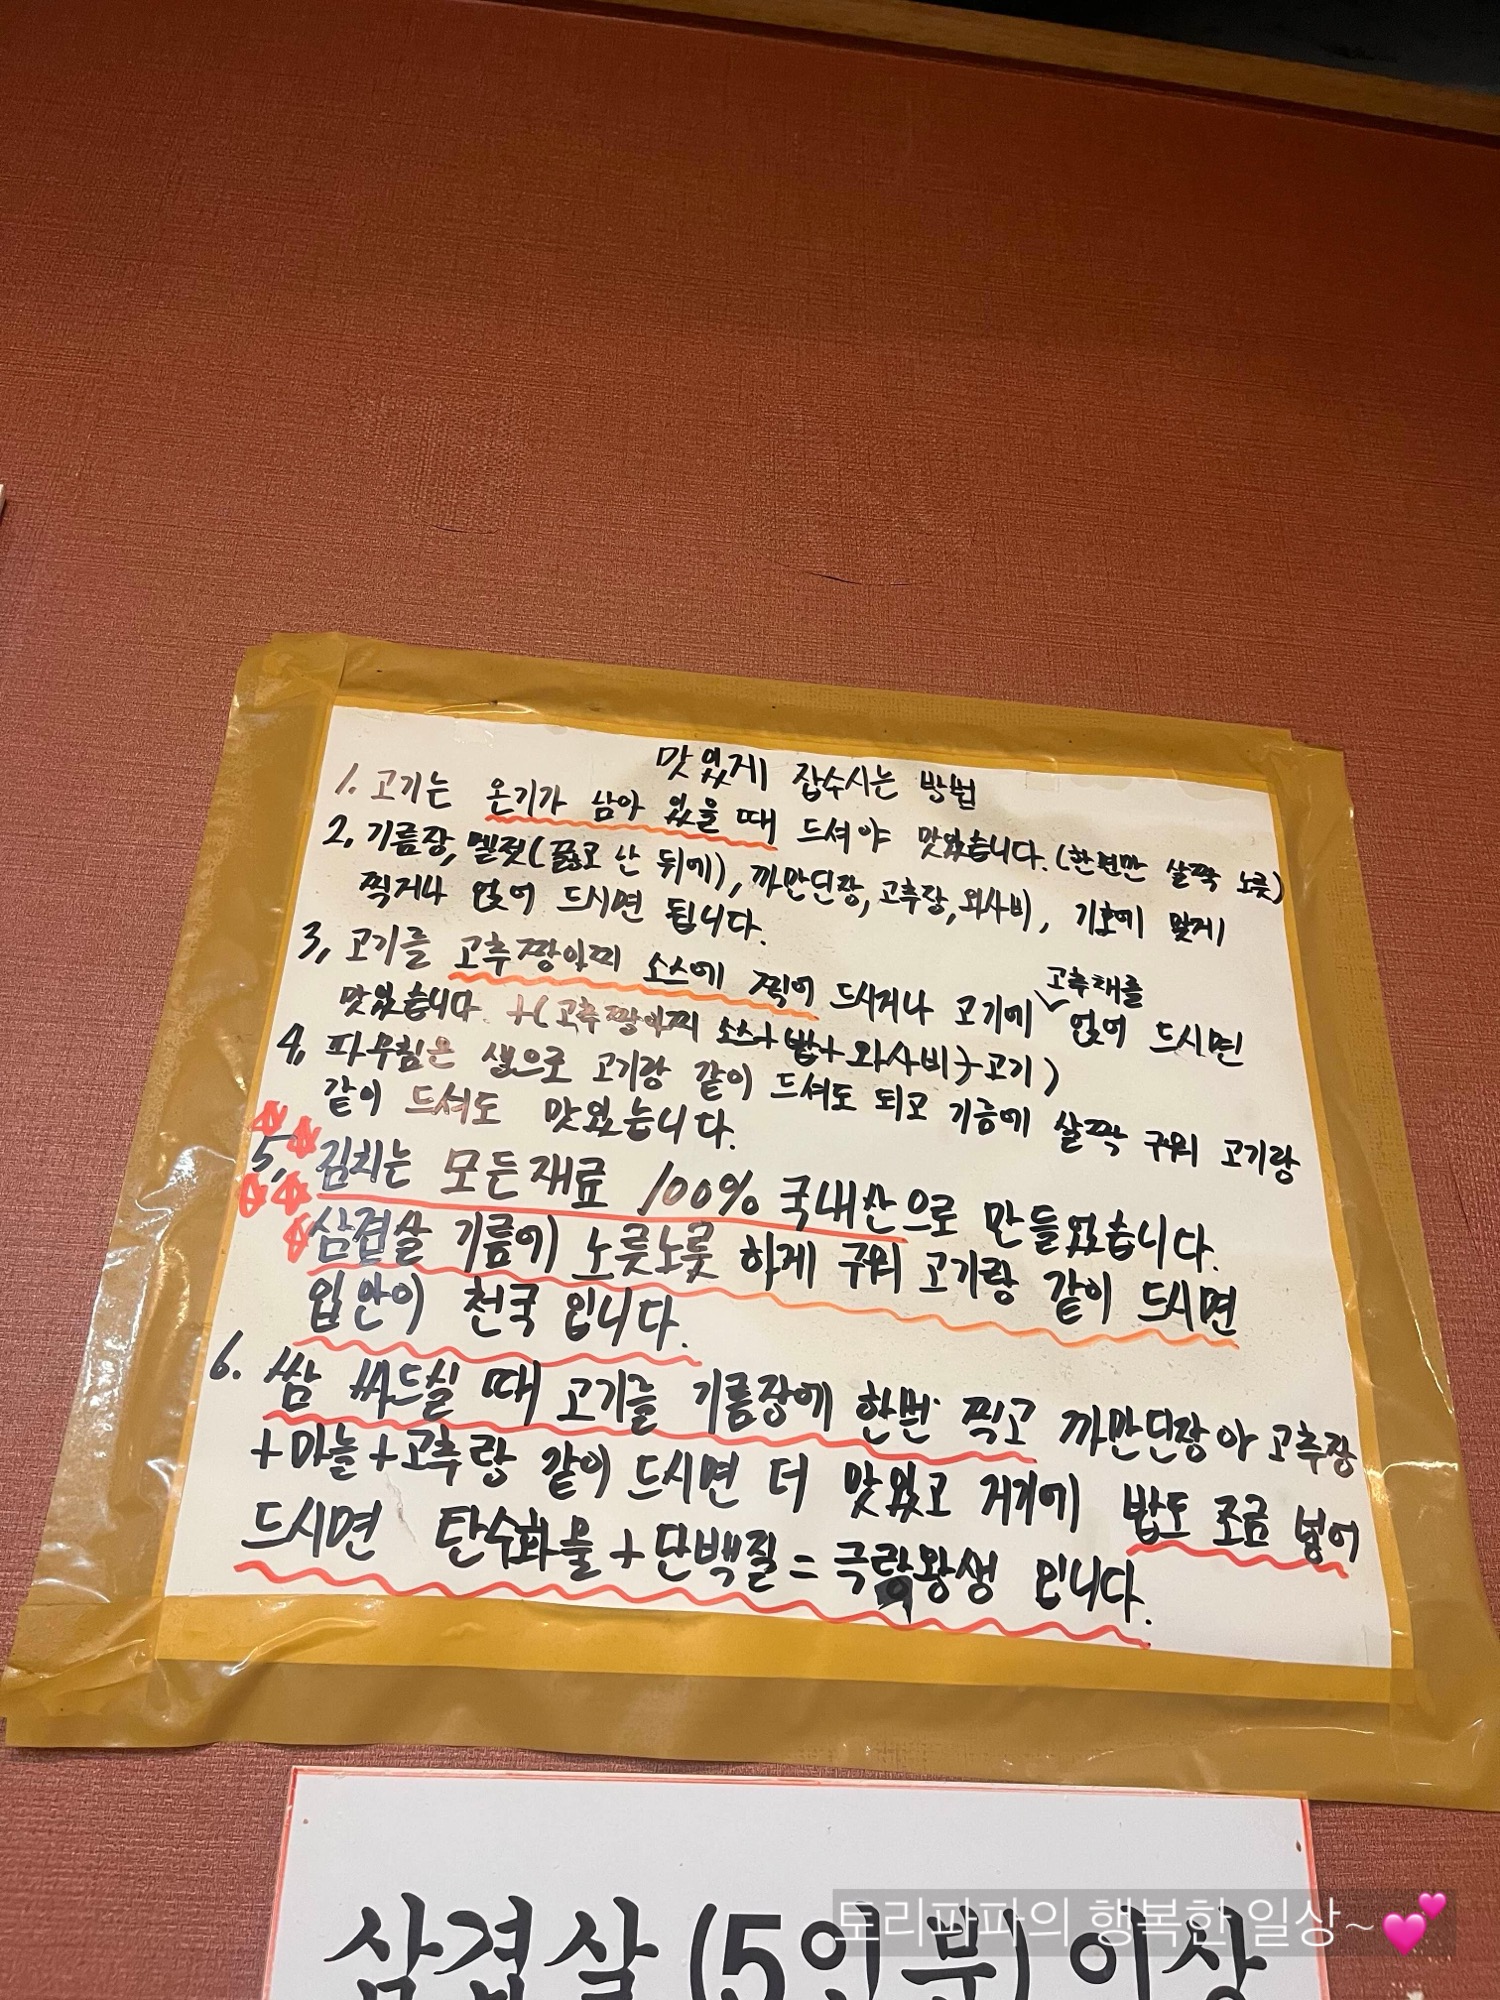 맛있게 잡수시는 방법
1. 고기는 온기가 남아 있을 때 드셔야 맛있습니다.(한면만 살짝 노릇)
2, 기름장, 멜젓(끓고 난 뒤에), 까만된장, 고추장, 와사비, 기호에 맞게
찍거나 얹어 드시면 됩니다.
3, 고기를 고추짱아찌 소스에 찍어 드시거나 고기에 고추채를 얹어 드시면
맛있습니다. +(고추짱아찌 소스+밥+와사비+고기)
4, 파무침은 생으로 고기랑 같이 드셔도 되고 기름에 살짝 구워 고기랑
같이 드셔도 맛있습니다.
5, 김치는 모든재료 100% 국내산으로 만들었습니다.
삼겹살 기름에 노릇노릇 하게 구워 고기랑 같이 드시면
입안이 천국 입니다.
6. 쌈 싸드실 때 고기를 기름장에 한번 찍고 까만된장아 고추장
+마늘+고추랑 같이 드시면 더 맛있고 거기에 밥도 조금 넣어
드시면 탄수화물+단백질=극락왕생 입니다.
삼겹살 (5인분) 이상
토리파파의 행복한 일상~💕